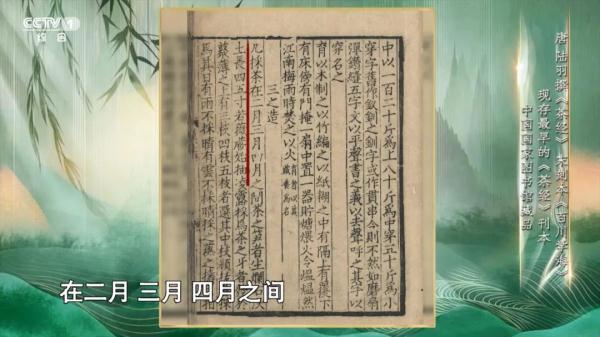 CCTV 1
综合
唐 陆羽撰《茶经》 宋刻本《百川学海》
现存最早的《茶经》刊本
中国国家图书馆藏品
中以一百二十斤為上八十斤為中穿五十斤為小
穿字舊作釵釧之釧字或作貫串今則不然如磨扇
彈鑽縫五字文以平聲書之義以去聲呼之其字以
穿名之
育以木制之以竹編之以紙糊之中有隔上有覆下
有床傍有門掩一扇中置一器貯煻煨火令熅熅然
江南梅雨時焚之以火 育者以其藏養為名
三之造
凡採茶在二月三月四月之間茶之笋者生爛石
土長四五寸若薇蕨始抽凌露採焉茶之牙者發
薄之上有三枝四枝五枝者選其中枝穎拔
焉其日有雨不採晴有雲不採晴
在二月 三月 四月之间